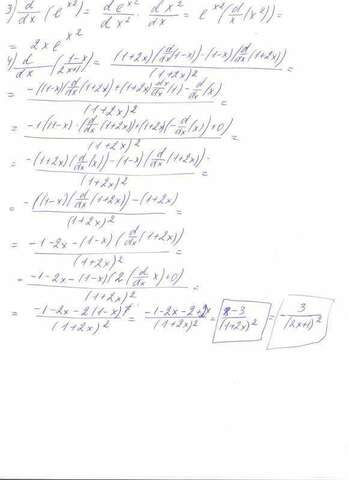 3) d/dx (e^x²) = de^x²/dx² · dx²/dx = e^x² (d/dx (x²)) =
= 2xe^x²
4) d/dx ((1-x)/(2x+1)) = ((1+2x)(d/dx(1-x)) - (1-x)(d/dx(1+2x)))/(1+2x)²
= (-(1-x)(d/dx(1+2x)) + (1+2x) d/dx(1) - d/dx(x))/(1+2x)² =
= (-1(1-x)·(d/dx(1+2x)) + (1+2x)(-d/dx(x)+0))/(1+2x)² =
= (-(1+2x)(d/dx(x)) - (1-x)(d/dx(1+2x)))/(1+2x)² =
= (-((1-x)(d/dx(1+2x)) - (1+2x))/(1+2x)² =
= (-1-2x-(1-x)(d/dx(1+2x)))/(1+2x)² =
= (-1-2x-(1-x)(2(d/dx x)+0))/(1+2x)² =
= (-1-2x-2(1-x))/(1+2x)² = (-1-2x-2+2x)/(1+2x)² = -3/(1+2x)² = -3/(2x+1)²